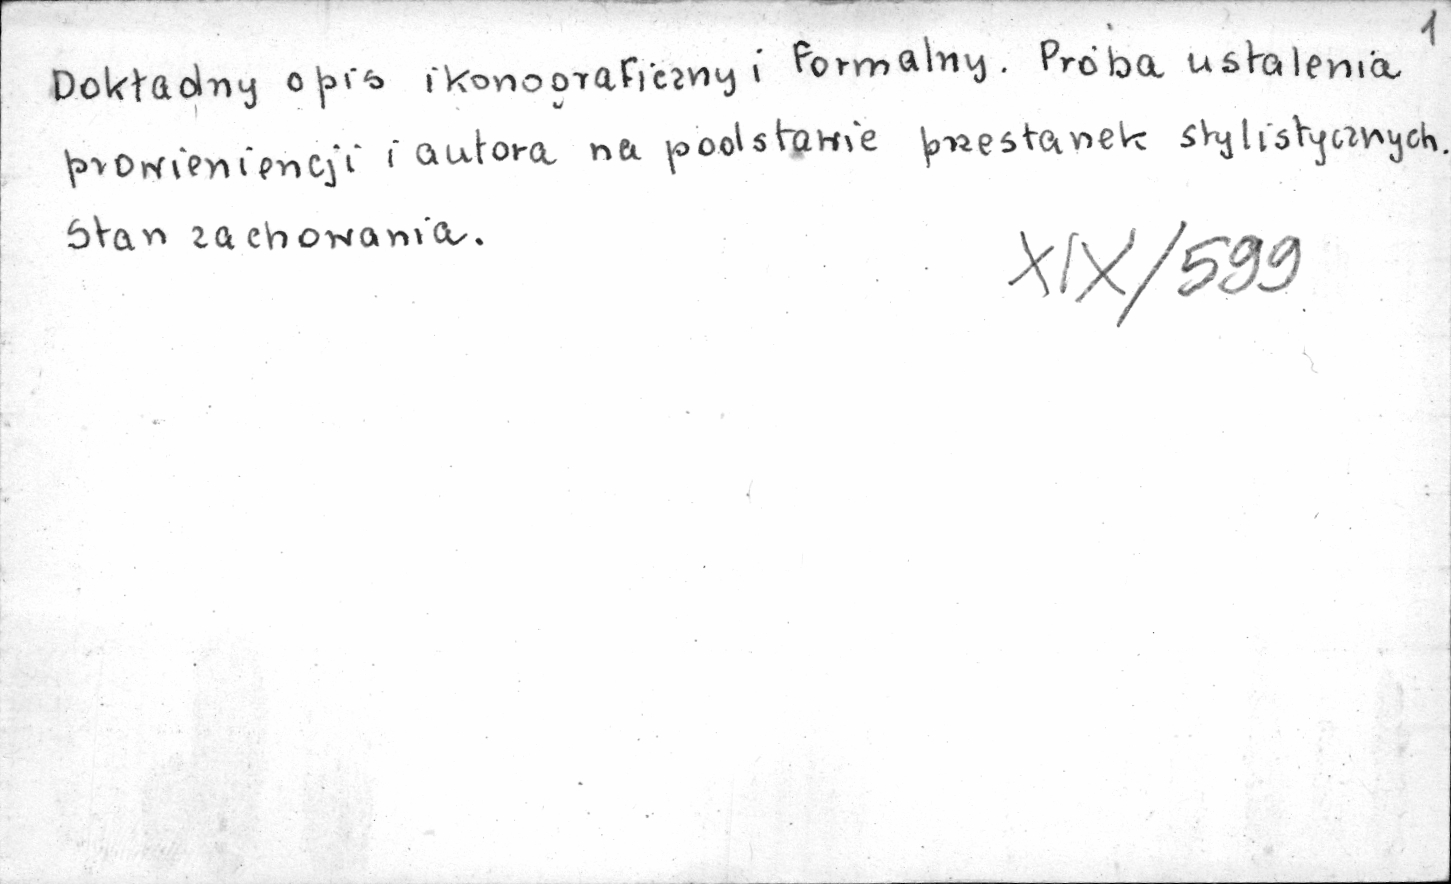 1
Dokładny opis ikonograficzny i formalny. Próba ustalenia
prowieniencji i autora na podstawie przesłanek stylistycznych.
Stan zachowania.
XIX/599